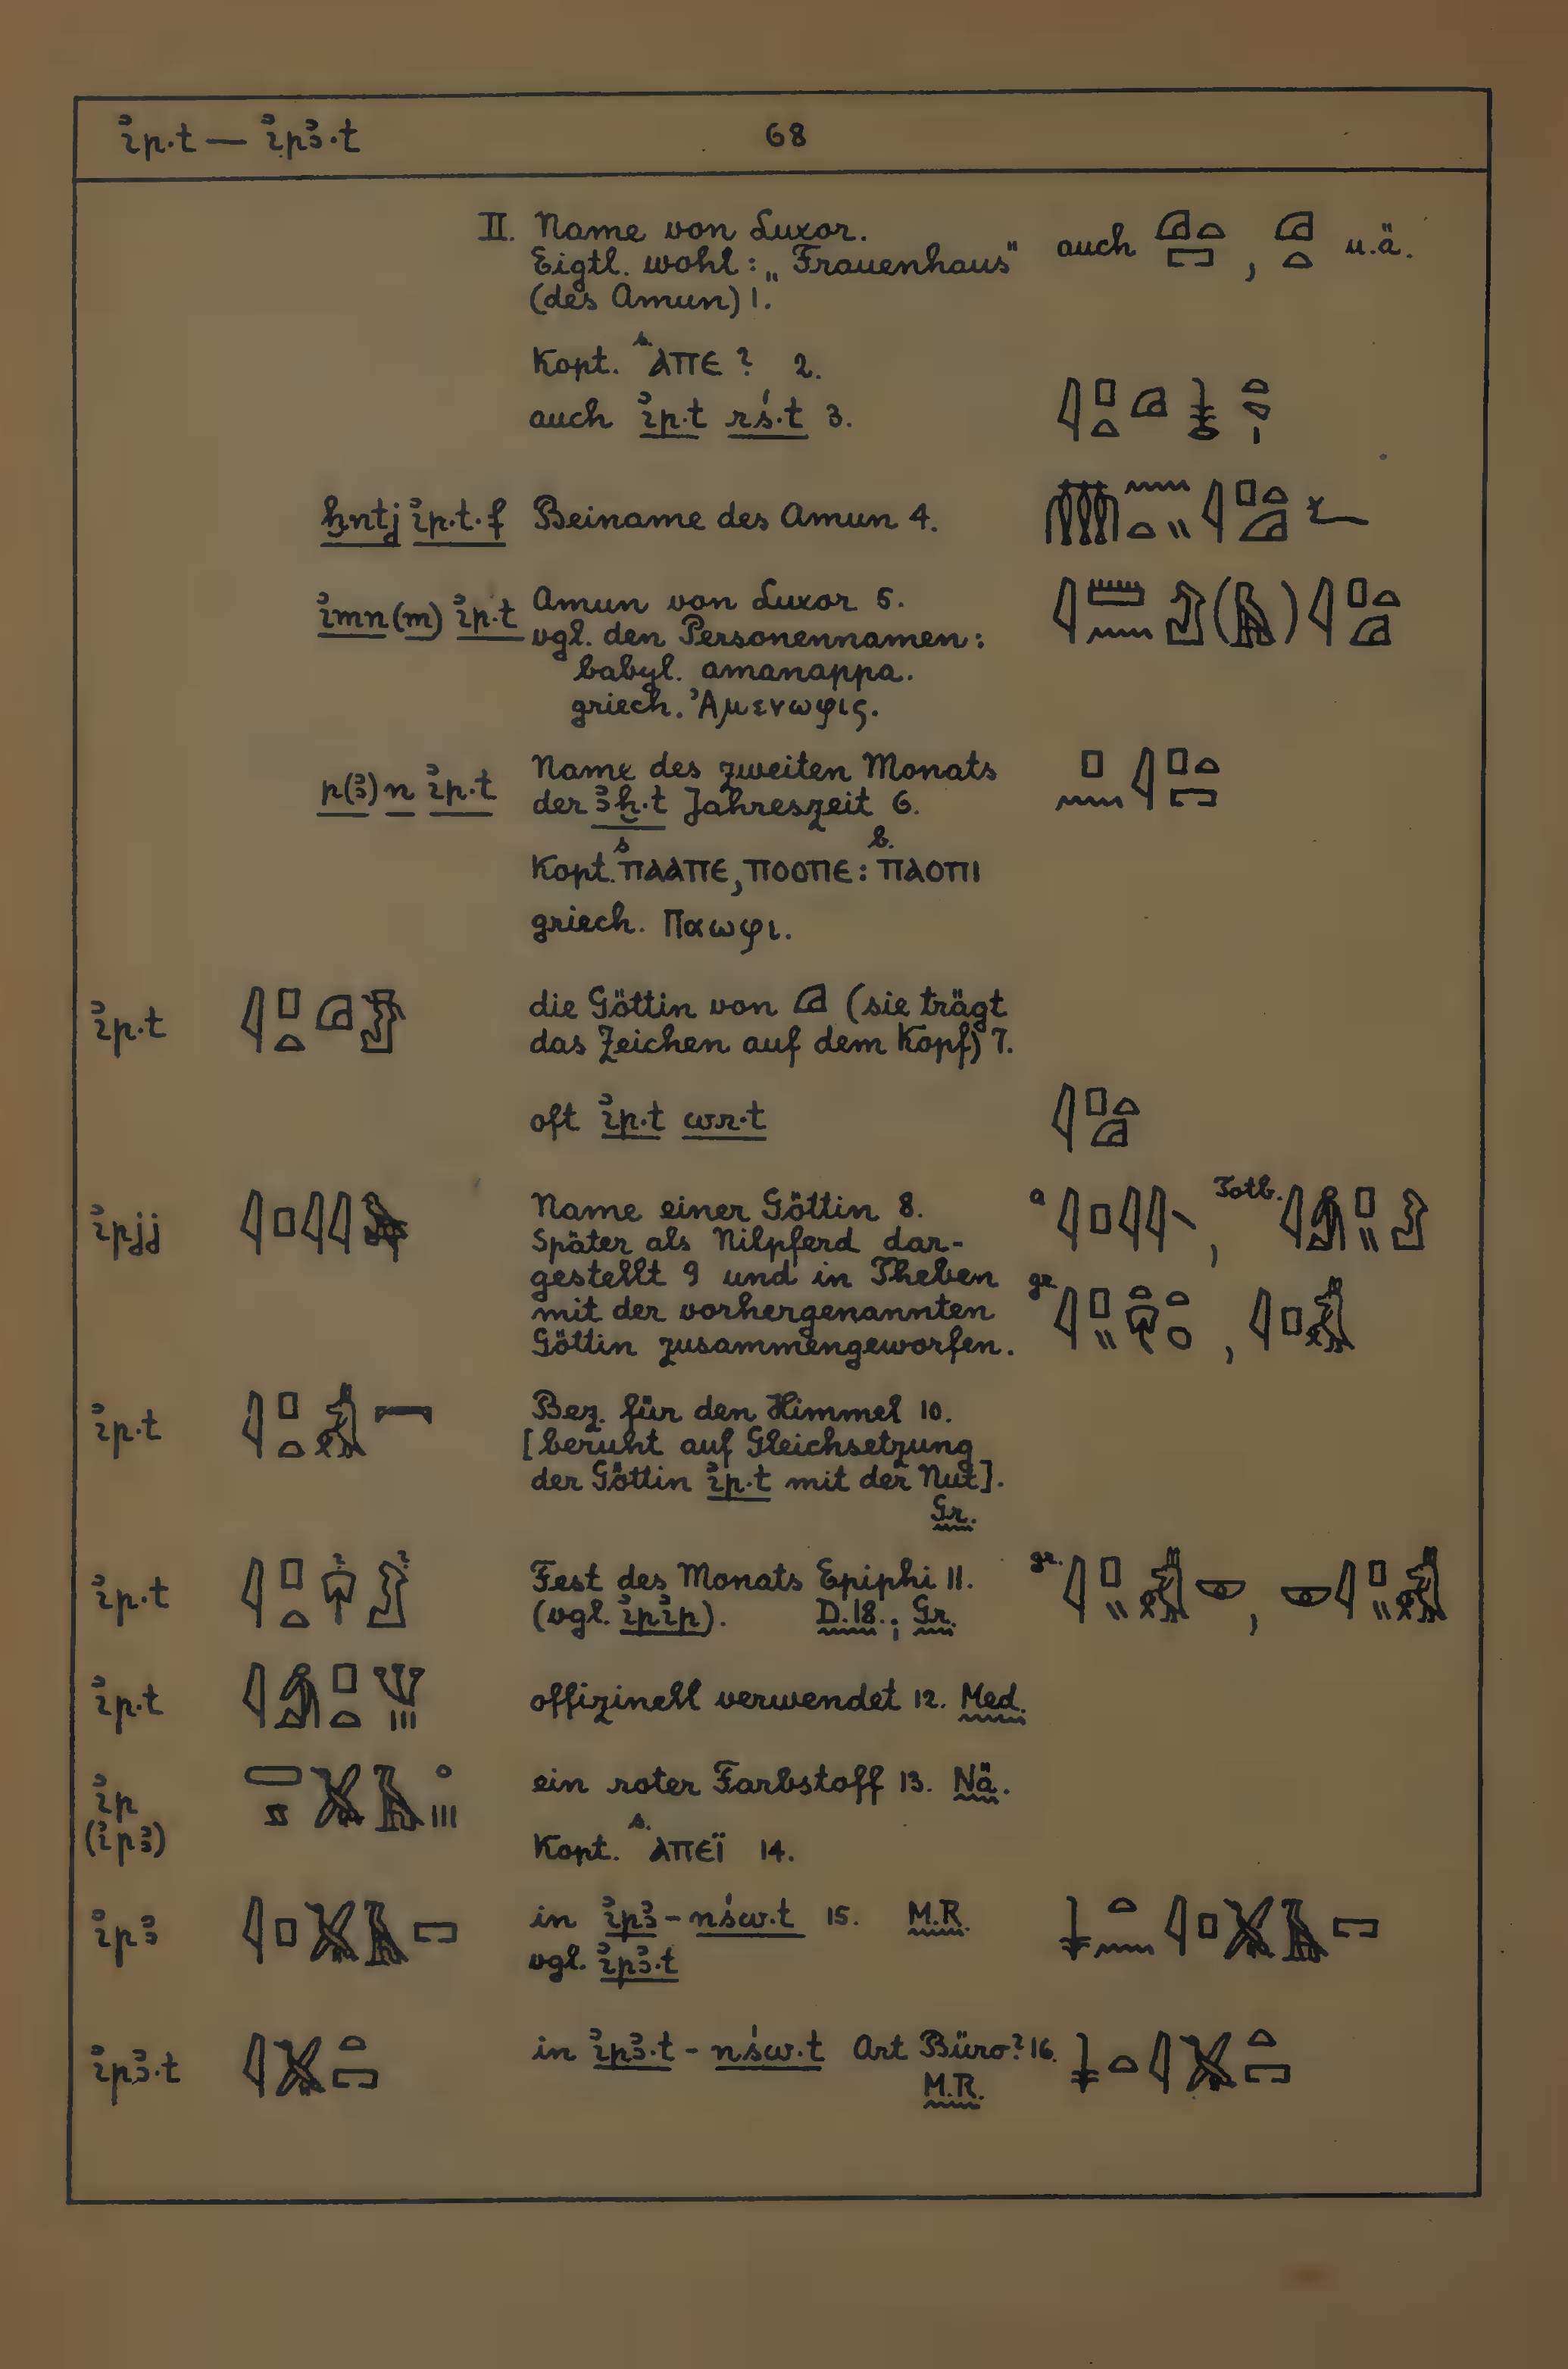 ꞽp.t — ꞽpꜣ.t 68
II. Name von Luxor. auch 𓇋𓊪... , u.ä.
Eigtl. wohl: „Frauenhaus"
(des Amun) 1.
Kopt. s. ⲁⲡⲉ ? 2.
auch ꞽp.t rś.t 3.
ḫntj ꞽp.t.f Beiname des Amun 4.
ꞽmn (m) ꞽp.t Amun von Luxor 5.
vgl. den Personennamen:
babyl. amanappa.
griech. Ἀμενωφις.
p(ꜣ) n ꞽp.t Name des zweiten Monats
der ꜣḫ.t Jahreszeit 6.
Kopt. s ⲡⲁⲁⲡⲉ, ⲡⲟⲟⲡⲉ : b. ⲡⲁⲟⲡⲓ
griech. Παωφι.
ꞽp.t die Göttin von (sie trägt
das Zeichen auf dem Kopf) 7.
oft ꞽp.t wr.t
ꞽpjj Name einer Göttin 8. a , Totb.
Später als Nilpferd dar-
gestellt 9 und in Theben gr. ,
mit der vorhergenannten
Göttin zusammengeworfen.
ꞽp.t Bez. für den Himmel 10.
[beruht auf Gleichsetzung
der Göttin ꞽp.t mit der Nut].
Gr.
ꞽp.t Fest des Monats Epiphi 11. gr. ,
(vgl. ꞽpꞽp). D.18.; Gr.
ꞽp.t offizinell verwendet 12. Med.
ꞽp ein roter Farbstoff 13. Nä.
(ꞽpꜣ) Kopt. s. ⲁⲡⲉⲓ̈ 14.
ꞽpꜣ in ꞽpꜣ-nśw.t 15. M.R.
vgl. ꞽpꜣ.t
ꞽpꜣ.t in ꞽpꜣ.t - nśw.t Art Büro? 16.
M.R.